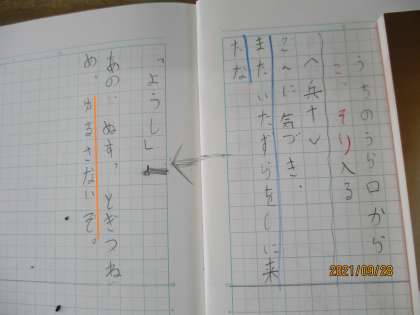 うちのうら口から
こっそり入る
〈兵十〉
ごんに気づき、
またいたずらをしに来
たな
「ようし」
あの、ぬすっとぎつね
め、ゆるさないぞ。
2021/09/28